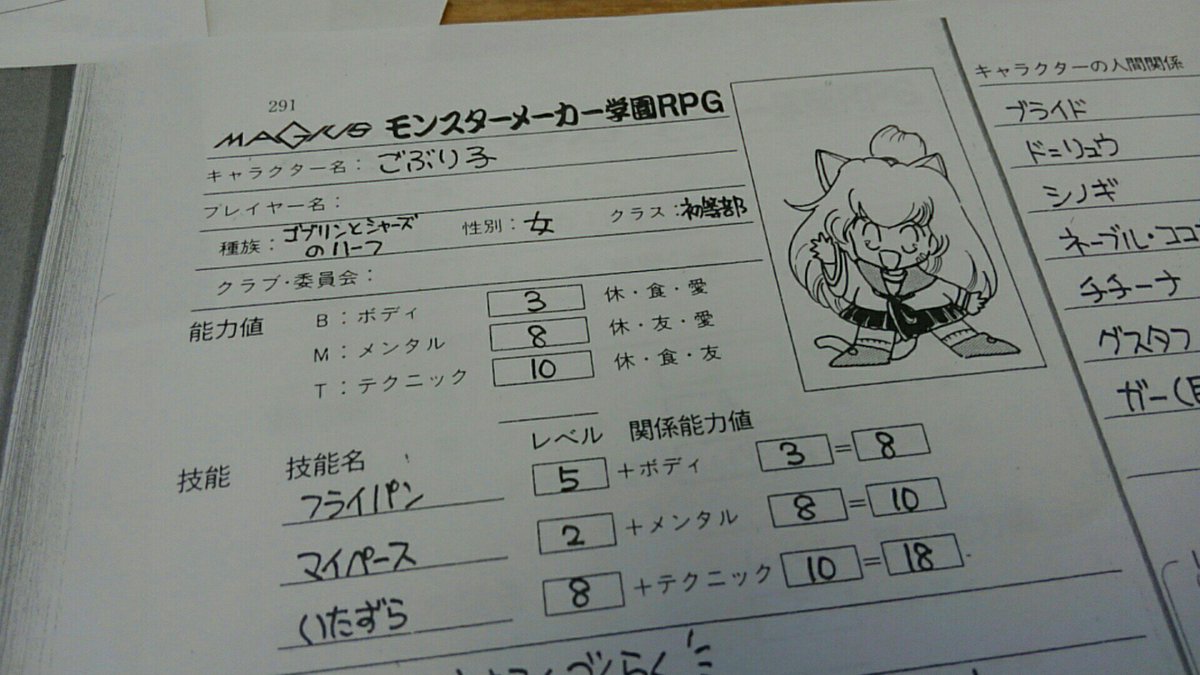 291
MAGIUS モンスターメーカー学園RPG
キャラクター名：ごぶり子
プレイヤー名：
種族：ゴブリンとシャーズのハーフ 性別：女 クラス：初等部
クラブ・委員会：
能力値 B：ボディ 3 休・食・愛
M：メンタル 8 休・友・愛
T：テクニック 10 休・食・友
レベル 関係能力値
技能 技能名
フライパン 5 ＋ボディ 3 = 8
マイペース 2 ＋メンタル 8 = 10
いたずら 8 ＋テクニック 10 = 18
キャラクターの人間関係
ブライド
ド=リュウ
シノギ
ネーブル・ココ
チチーナ
グスタフ
ガー(